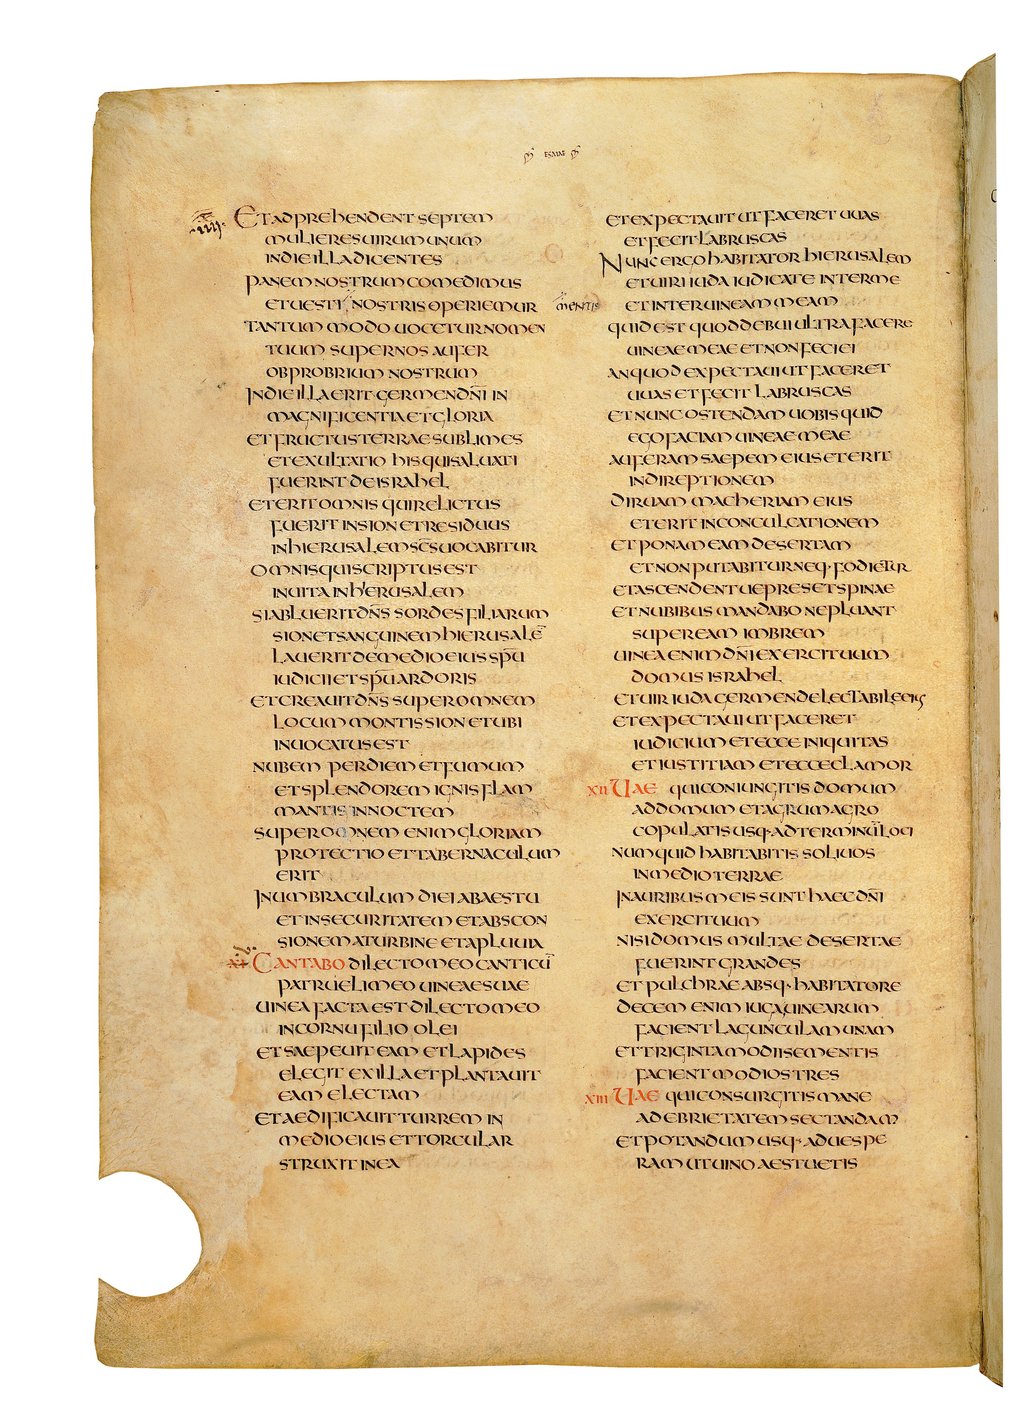 ESAIAS
IIII ET ADPREHENDENT SEPTEM
MULIERES UIRUM UNUM
IN DIE ILLA DICENTES
PANEM NOSTRUM COMEDIMUS
ET UESTI NOSTRIS OPERIEMUR MENTIS
TANTUM MODO UOCETUR NOMEN
TUUM SUPER NOS AUFER
OBPROBRIUM NOSTRUM
IN DIE ILLA ERIT GERMEN DN̄I IN
MAGNIFICENTIA ET GLORIA
ET FRUCTUS TERRAE SUBLIMES
ET EXULTATIO HIS QUI SALUATI
FUERINT DE ISRAHEL
ET ERIT OMNIS QUI RELICTUS
FUERIT IN SION ET RESIDUUS
IN HIERUSALEM SC̄S UOCABITUR
OMNIS QUI SCRIPTUS EST
IN UITA IN HIERUSALEM
SI ABLUERIT DN̄S SORDES FILIARUM
SION ET SANGUINEM HIERUSALĒ
LAUERIT DE MEDIO EIUS SPŪ
IUDICII ET SPŪ ARDORIS
ET CREAUIT DN̄S SUPER OMNEM
LOCUM MONTIS SION ET UBI
INUOCATUS EST
NUBEM PER DIEM ET FUMUM
ET SPLENDOREM IGNIS FLAM
MANTIS IN NOCTEM
SUPER OMNEM ENIM GLORIAM
PROTECTIO ET TABERNACULUM
ERIT
IN UMBRACULUM DIEI AB AESTU
ET IN SECURITATEM ET ABSCON
SIONEM A TURBINE ET A PLUUIA
XI CANTABO DILECTO MEO CANTICŪ
PATRUELI MEO UINEAE SUAE
UINEA FACTA EST DILECTO MEO
IN CORNU FILIO OLEI
ET SAEPEUIT EAM ET LAPIDES
ELEGIT EX ILLA ET PLANTAUIT
EAM ELECTAM
ET AEDIFICAUIT TURREM IN
MEDIO EIUS ET TORCULAR
STRUXIT IN EA
ET EXPECTAUIT UT FACERET UUAS
ET FECIT LABRUSCAS
NUNC ERGO HABITATOR HIERUSALEM
ET UIRI IUDA IUDICATE INTER ME
ET INTER UINEAM MEAM
QUID EST QUOD DEBUI ULTRA FACERE
UINEAE MEAE ET NON FECI EI
AN QUOD EXPECTAUI UT FACERET
UUAS ET FECIT LABRUSCAS
ET NUNC OSTENDAM UOBIS QUID
EGO FACIAM UINEAE MEAE
AUFERAM SAEPEM EIUS ET ERIT
IN DIREPTIONEM
DIRUAM MACHERIAM EIUS
ET ERIT IN CONCULCATIONEM
ET PONAM EAM DESERTAM
ET NON PUTABITUR NEQ· FODIETUR
ET ASCENDENT UEPRES ET SPINAE
ET NUBIBUS MANDABO NE PLUANT
SUPER EAM IMBREM
UINEA ENIM DN̄I EXERCITUUM
DOMUS ISRAHEL
ET UIR IUDA GERMEN DELECTABILE EIUS
ET EXPECTAUI UT FACERET
IUDICIUM ET ECCE INIQUITAS
ET IUSTITIAM ET ECCE CLAMOR
XII UAE QUI CONIUNGITIS DOMUM
AD DOMUM ET AGRUM AGRO
COPULATIS USQ· AD TERMINŪ LOCI
NUMQUID HABITABITIS SOLI UOS
IN MEDIO TERRAE
IN AURIBUS MEIS SUNT HAEC DN̄I
EXERCITUUM
NISI DOMUS MULTAE DESERTAE
FUERINT GRANDES
ET PULCHRAE ABSQ· HABITATORE
DECEM ENIM IUGA UINEARUM
FACIENT LAGUNCULAM UNAM
ET TRIGINTA MODII SEMENTIS
FACIENT MODIOS TRES
XIII UAE QUI CONSURGITIS MANE
AD EBRIETATEM SECTANDAM
ET POTANDUM USQ· AD UESPE
RAM UT UINO AESTUETIS